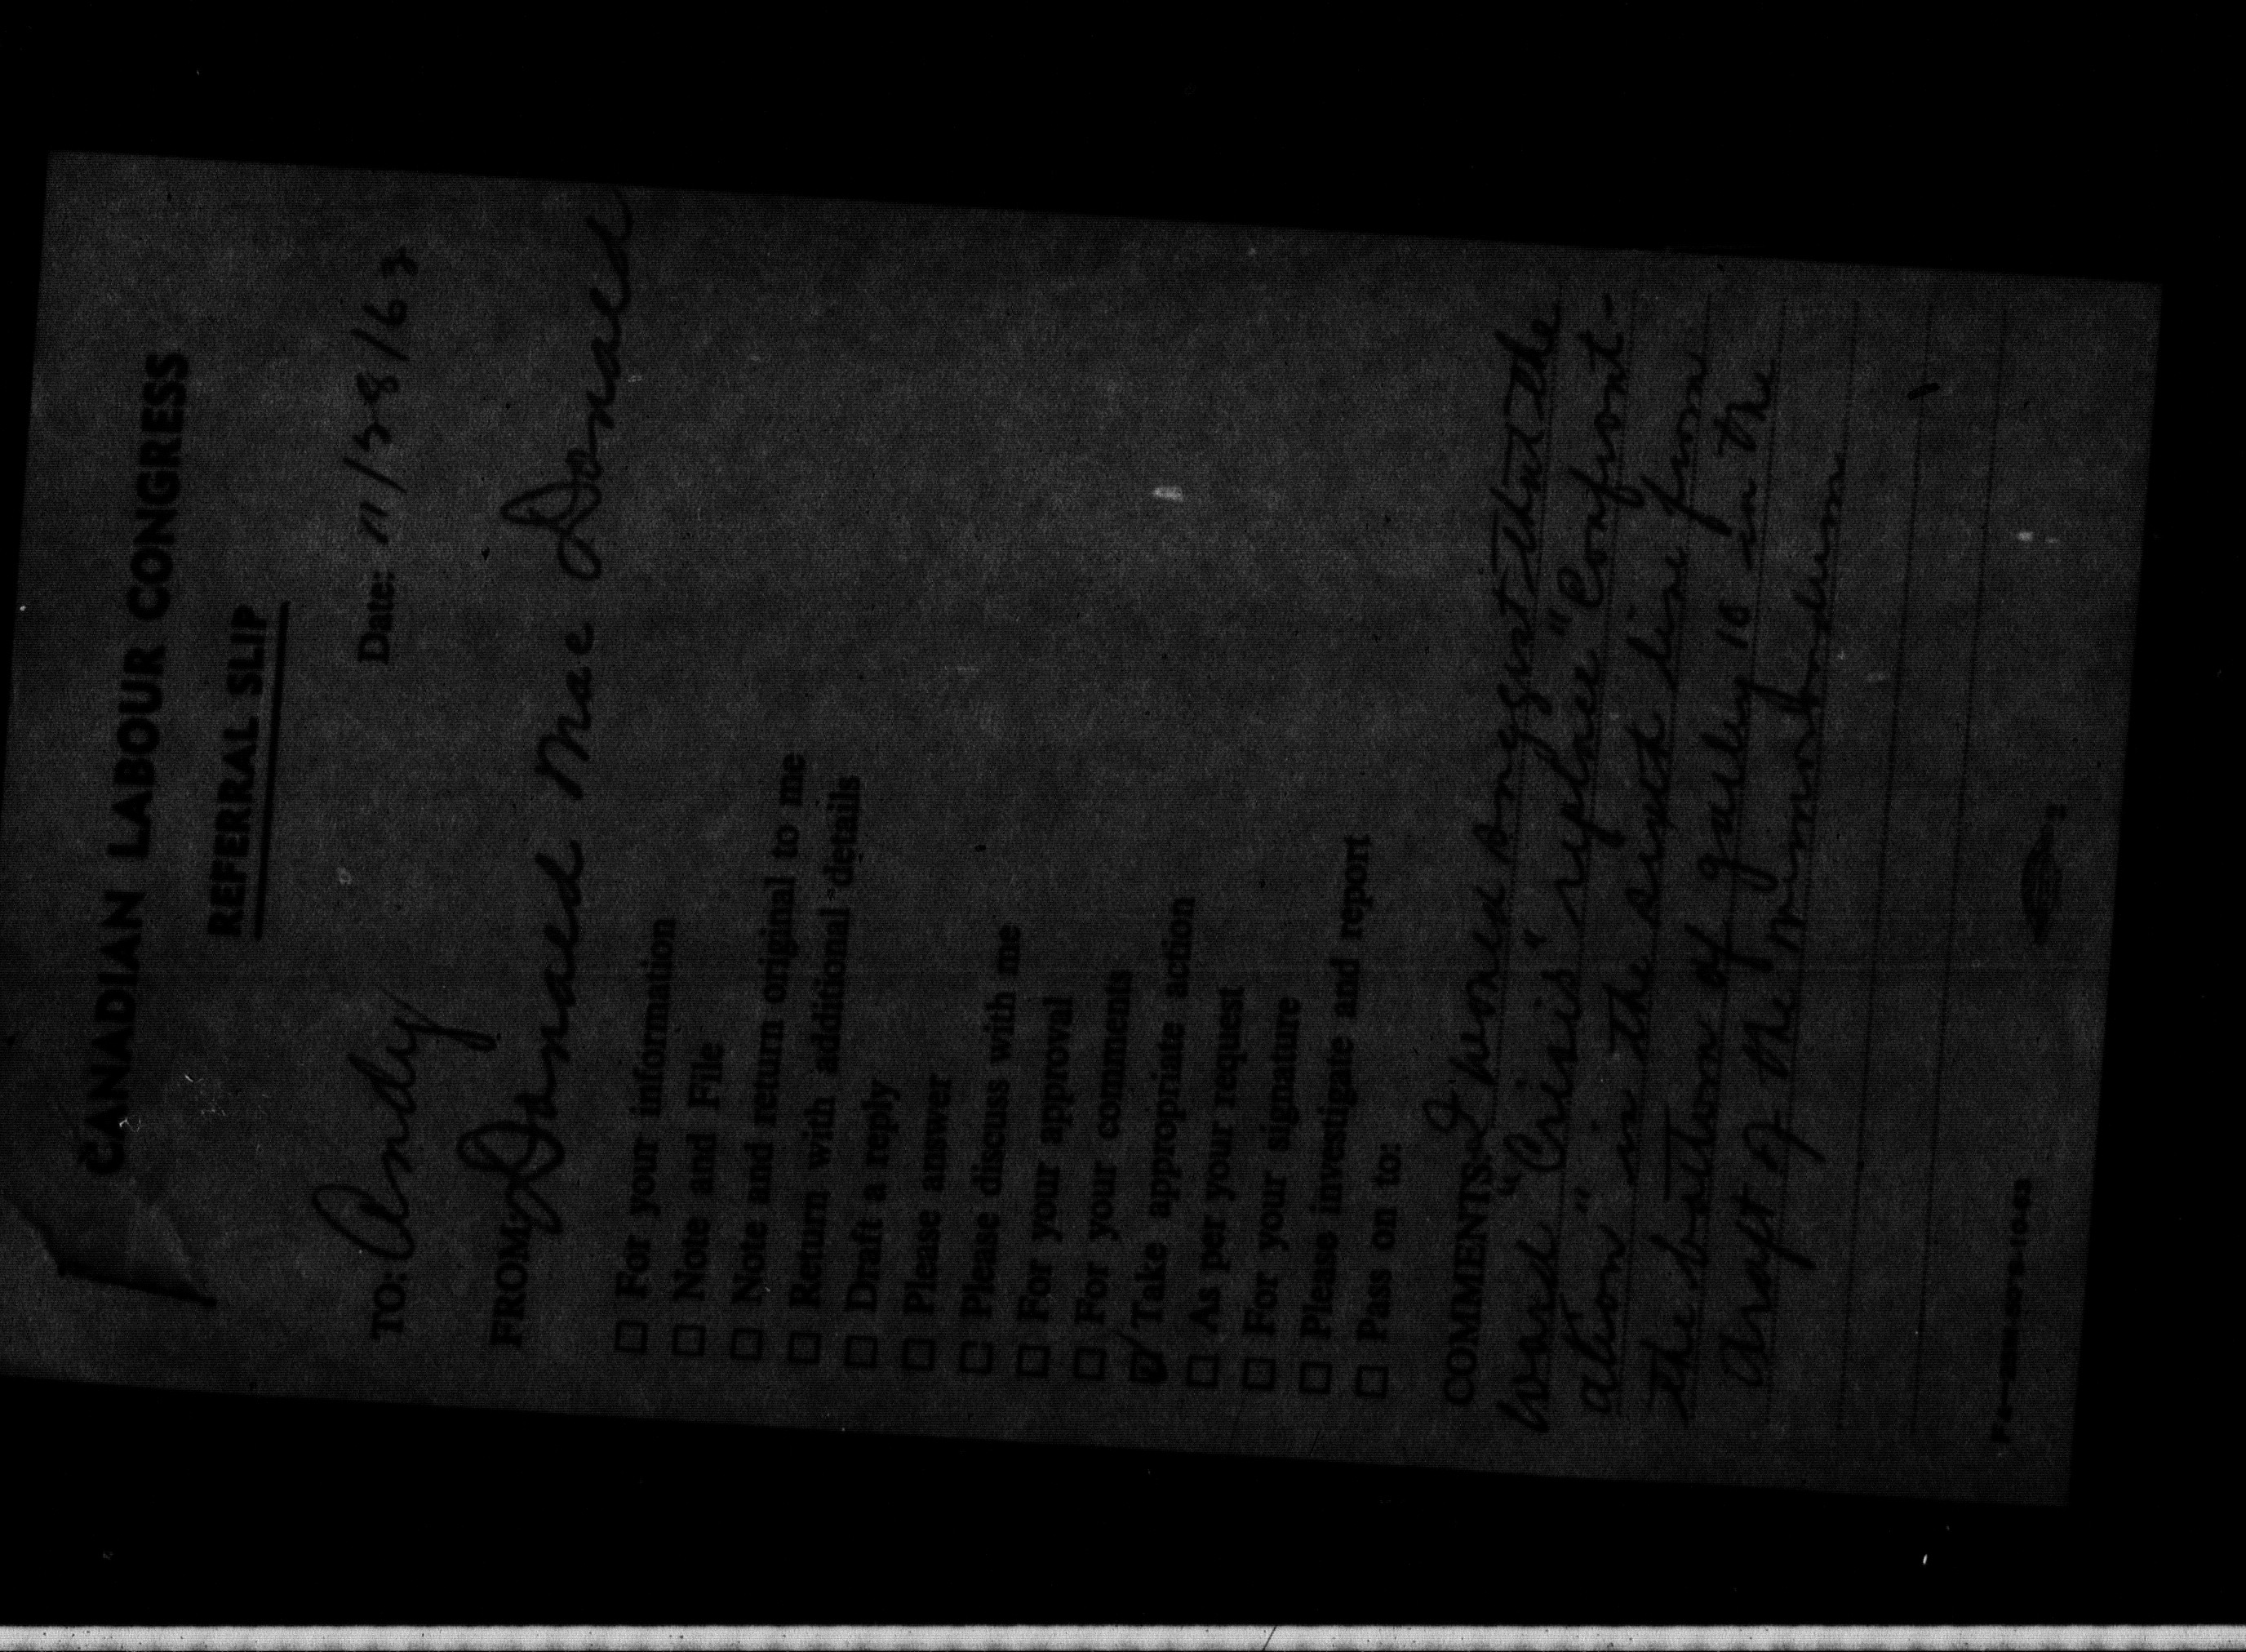 CANADIAN LABOUR CONGRESS
REFERRAL SLIP
Date: 11/28/63
TO: Andy
FROM: Donald MacDonald
☐ For your information
☐ Note and File
☐ Note and return original to me
☐ Return with additional details
☐ Draft a reply
☐ Please answer
☐ Please discuss with me
☐ For your approval
☐ For your comments
☑ Take appropriate action
☐ As per your request
☐ For your signature
☐ Please investigate and report
☐ Pass on to:
COMMENTS: I would suggest that the
word "Crisis" replace "Confront-
ation" in the sixth line from
the bottom of galley 10 in the
draft of the memorandum